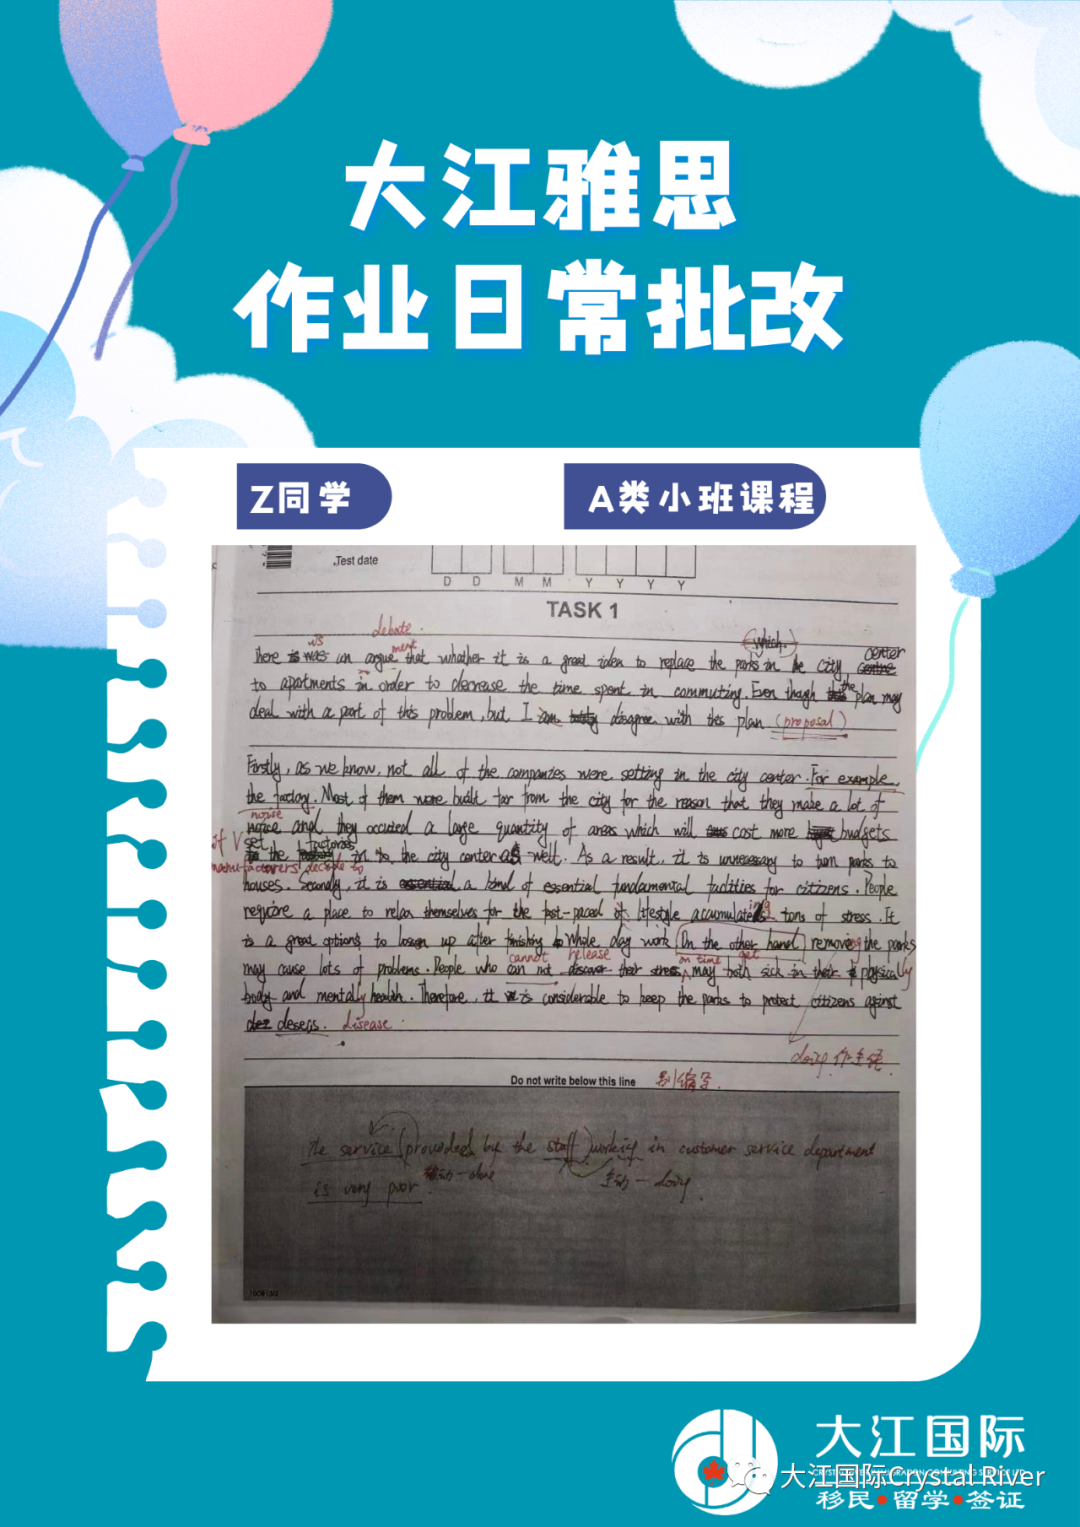 大江雅思
作业日常批改
Z同学
A类小班课程
Test date
D D M M Y Y Y Y
TASK 1
debate
is (which.) center
There an argue ment that whether it is a great idea to replace the parks in the city
to apartments in order to decrease the time spent in commuting. Even though the plan may
deal with a part of this problem, but I disagree with this plan (proposal)
Firstly, as we know, not all of the companies were setting in the city center. For example,
the factory. Most of them were built far from the city for the reason that they make a lot of
noise
and they occuied a large quantity of areas which will cost more budgets
if set factories
the in to the city center as well. As a result, it is unnecessary to turn parks to
manufacturers decide to
houses. Secondly, it is a kind of essential fundamental facilities for citizens. People
require a place to relax themselves for the fast-paced of lifestyle accumulateing tons of stress. It
is a great options to loosen up after finishing whole day work (On the other hand) removeing the parks
cannot release on time get
may cause lots of problems. People who can not discover their stress may both sick in their physically
body and mentally health. Therefore, it is considerable to keep the parks to protect citizens against
deseris. disease
doing 作主语
Do not write below this line 别编写.
The service (provided by the staff) working in customer service department
is very poor — done 主动 — doing
大江国际
大江国际Crystal River
移民•留学•签证